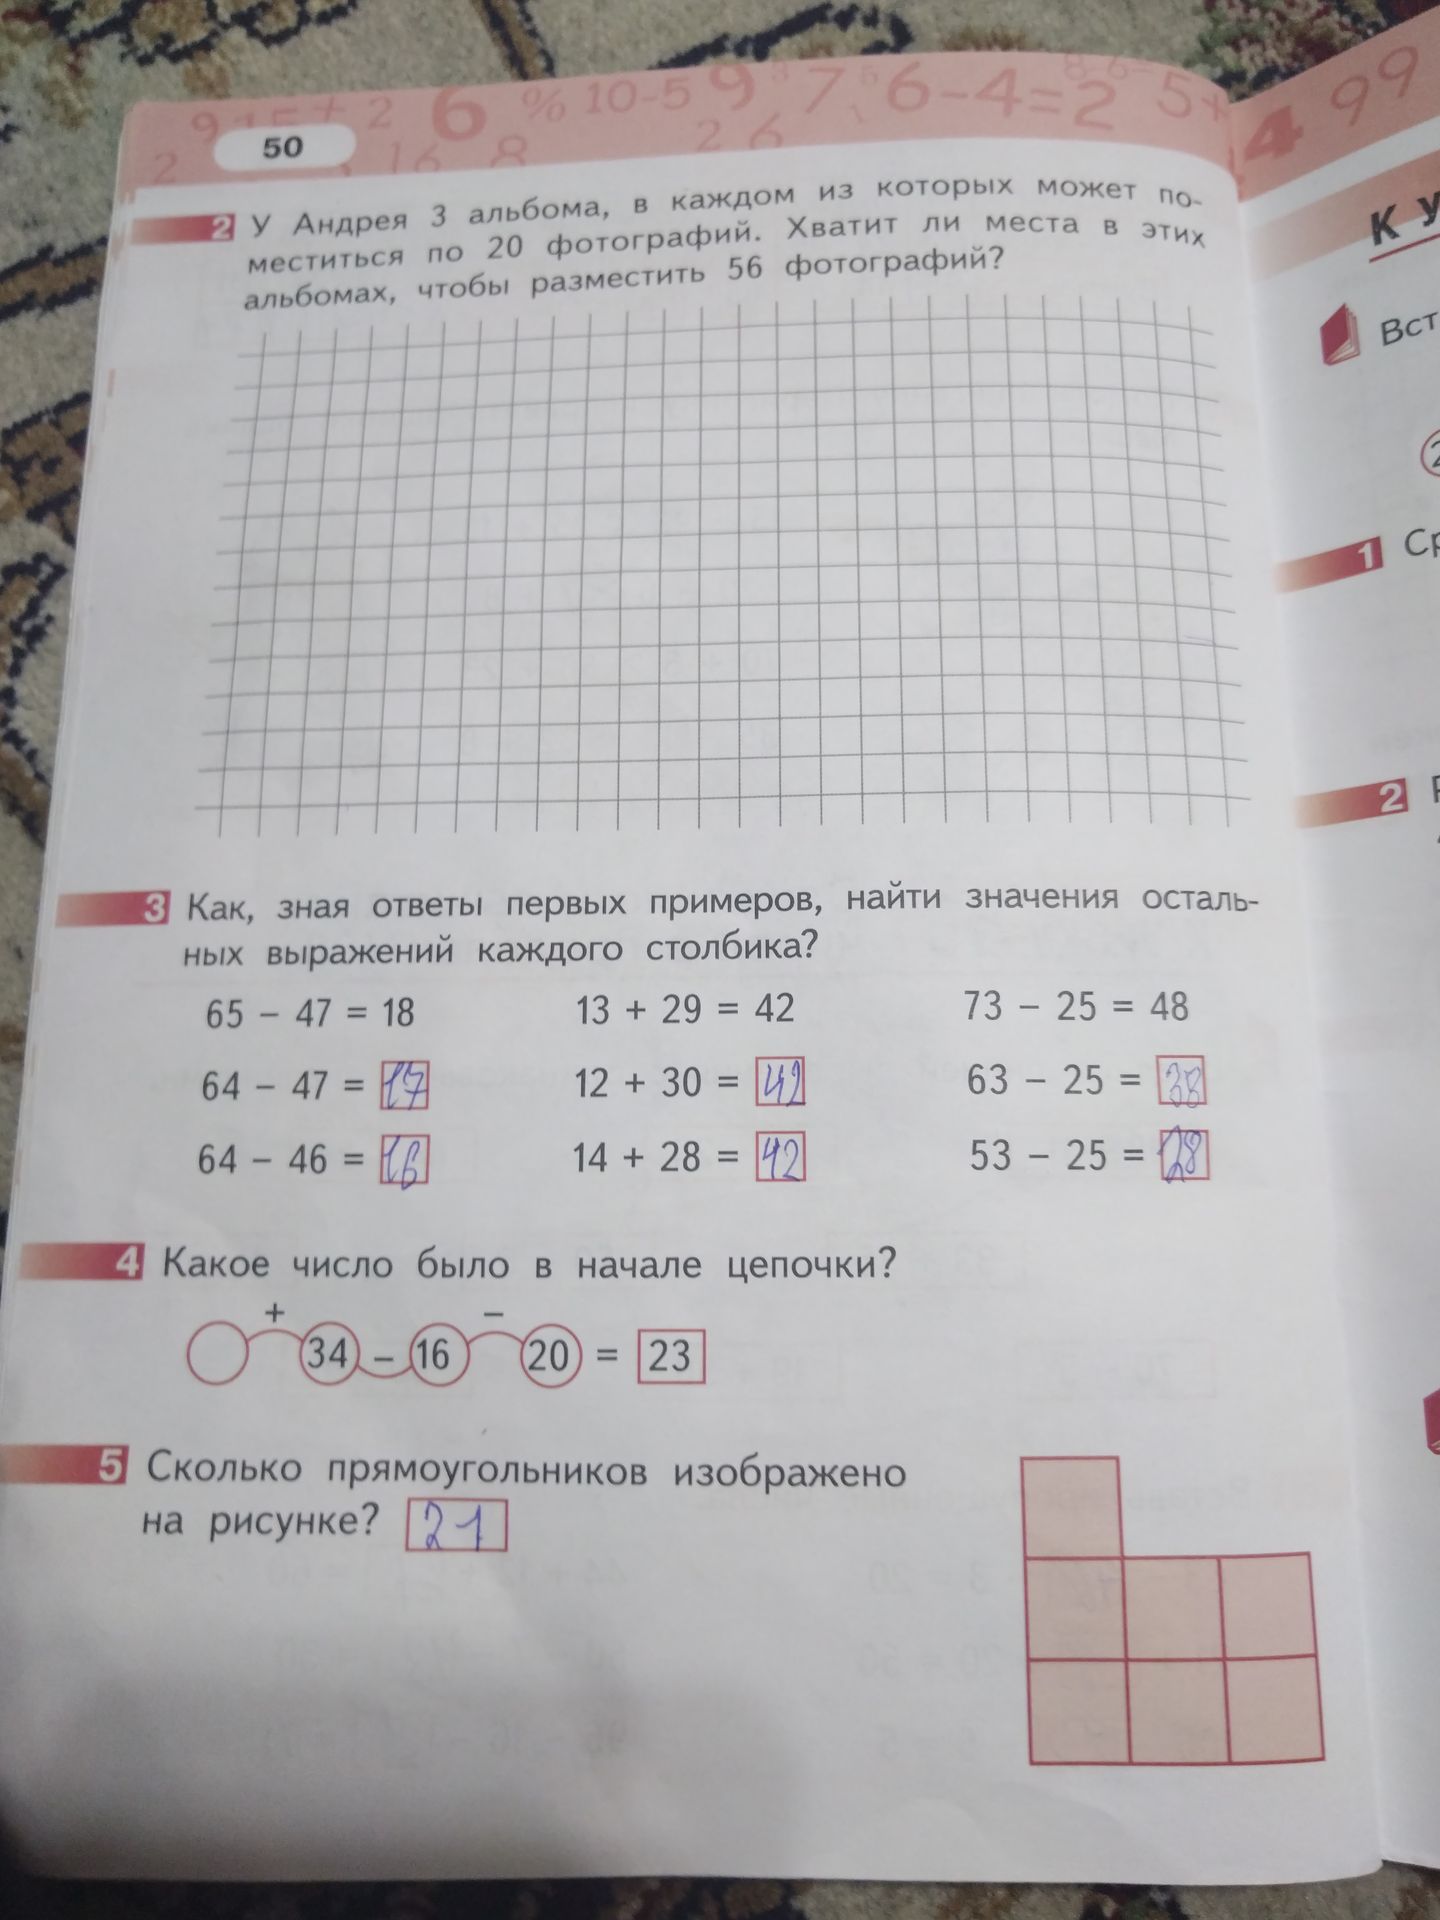 50
2 У Андрея 3 альбома, в каждом из которых может по-
меститься по 20 фотографий. Хватит ли места в этих
альбомах, чтобы разместить 56 фотографий?
3 Как, зная ответы первых примеров, найти значения осталь-
ных выражений каждого столбика?
65 – 47 = 18 13 + 29 = 42 73 – 25 = 48
64 – 47 = 17 12 + 30 = 42 63 – 25 = 38
64 – 46 = 16 14 + 28 = 42 53 – 25 = 28
4 Какое число было в начале цепочки?
+ –
34 – 16 20 = 23
5 Сколько прямоугольников изображено
на рисунке? 21
К У
Вст
1 Ср
2